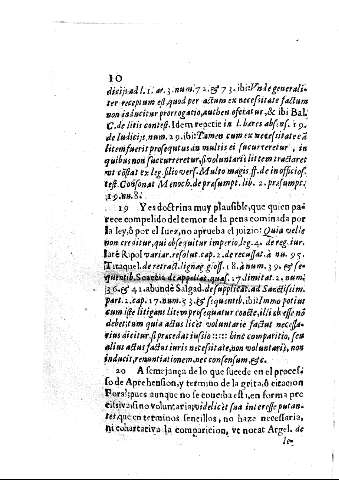 10
dicijs ad l. 1. ar. 3. num. 72. & 73. ibi: Vnde generali-
ter receptum est, quod per actum ex necessitate factum
non inducitur prorrogatio, authen ofertur, & ibi Bal.
C. de litis contest. Idem repetit in l. heres absens. 19.
de Iudicijs, num. 29. ibi: Tamen cum ex necessitate cā
litem fuerit prosequutus in multis ei succurreretur, in
quibus non succurreretur, si voluntariè littem tractaret
vt cōstat ex leg. filio vers. Multo magis ff. de in officios.
test. Consonat Menoch. de presumpt. lib. 2. presumpt.
19. nu. 8.
19 Y es doctrina muy plausible, que quien pa-
rece compelido del temor de la pena cominada por
la ley, ò por el Iuez, no aprueba el juizio: Quia velle
non creditur, qui obsequitur imperio, leg. 4. de reg. iur.
latè Ripol variar. resolut. cap. 2. de recussat. à nu. 95.
Tiraquel. de retract. lignag. gloss. 18. à num. 39. & se-
quentib. Scacbia de appellat. quæst. 17. limitat. 2. num.
36. & 41. abundè Salgad. de supplicat. ad Sanctissim.
part. 2. cap. 17. num. 53. & sequentib. ibi: Immo potius
cum iste litigans litem prosequatur coactè, illi ob esse nō
debet cum quia actus licèt voluntariè factus necessa-
rius dicitur, si præcedat iussio ::::: hinc comparitio, seu
alius actus factus iuris necessitate, non voluntariùs, non
inducit, renuntiationem, nec consensum, &c.
20 A semejança de lo que sucede en el proces-
so de Aprehension, y termino de la grita, ò citacion
Foral; pues aunque no se conciba esta, en forma pre-
cissiva, sino voluntaria, videlicet sua interesse putan-
tes, que en terminos sencillos, no haze necessaria,
ni cohartativa la comparicion, vt notat Argel. de
le-